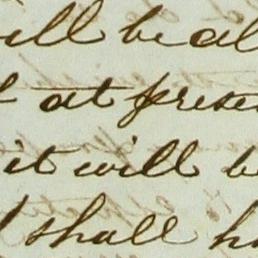 will be al
at prese
it will be
shall h